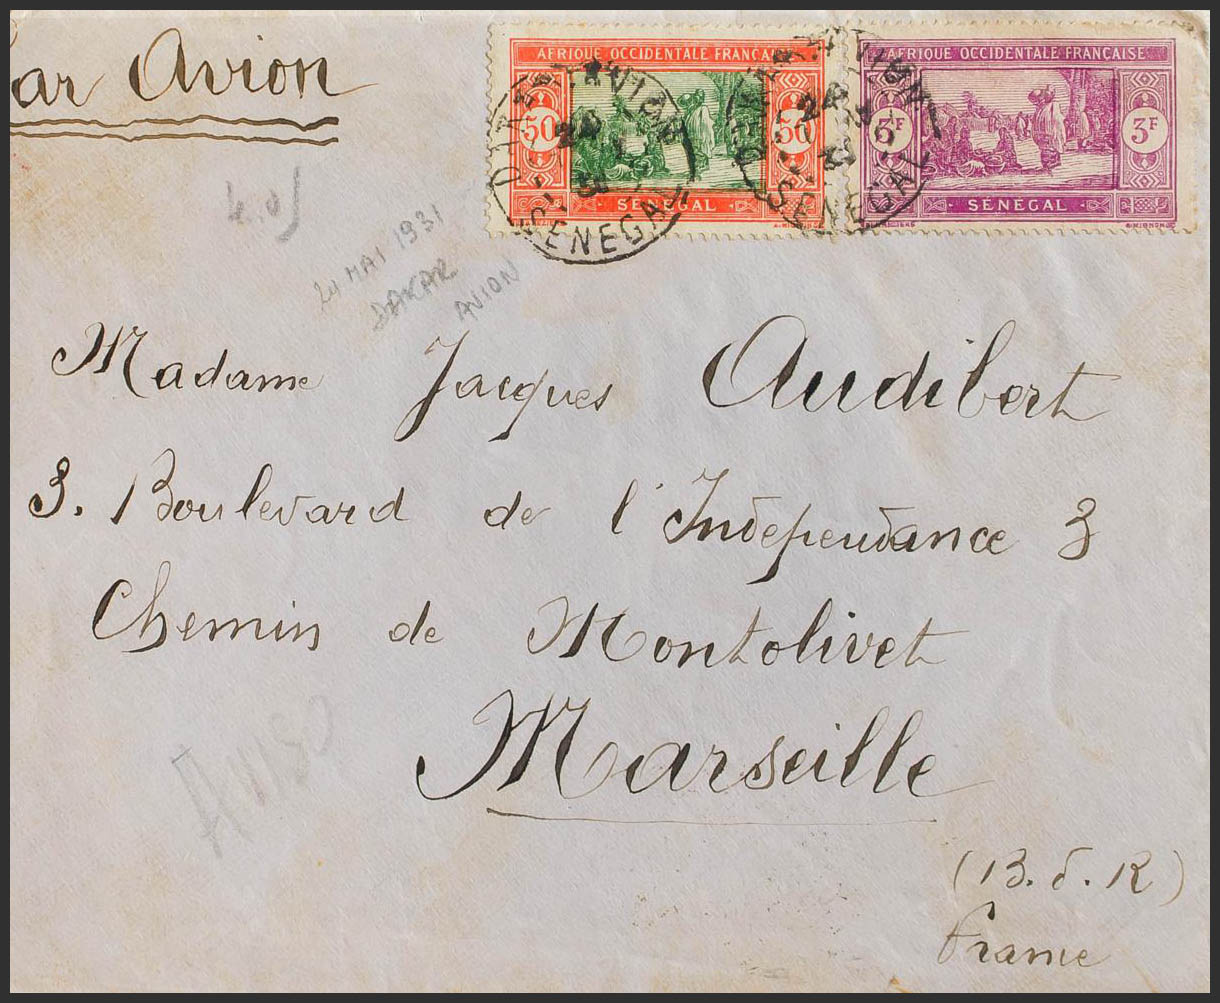 ar Avion
AFRIQUE OCCIDENTALE FRANÇAISE
50 50
SÉNÉGAL
AFRIQUE OCCIDENTALE FRANÇAISE
3F
SÉNÉGAL
DAKAR AVION
SENEGAL
DAKAR AVION
SENEGAL
24 MAI 1931
DAKAR
AVION
Madame Jacques Audibert
3. Boulevard de l'Independance 3
Chemin de Montolivet
Marseille
(B. d. R)
France